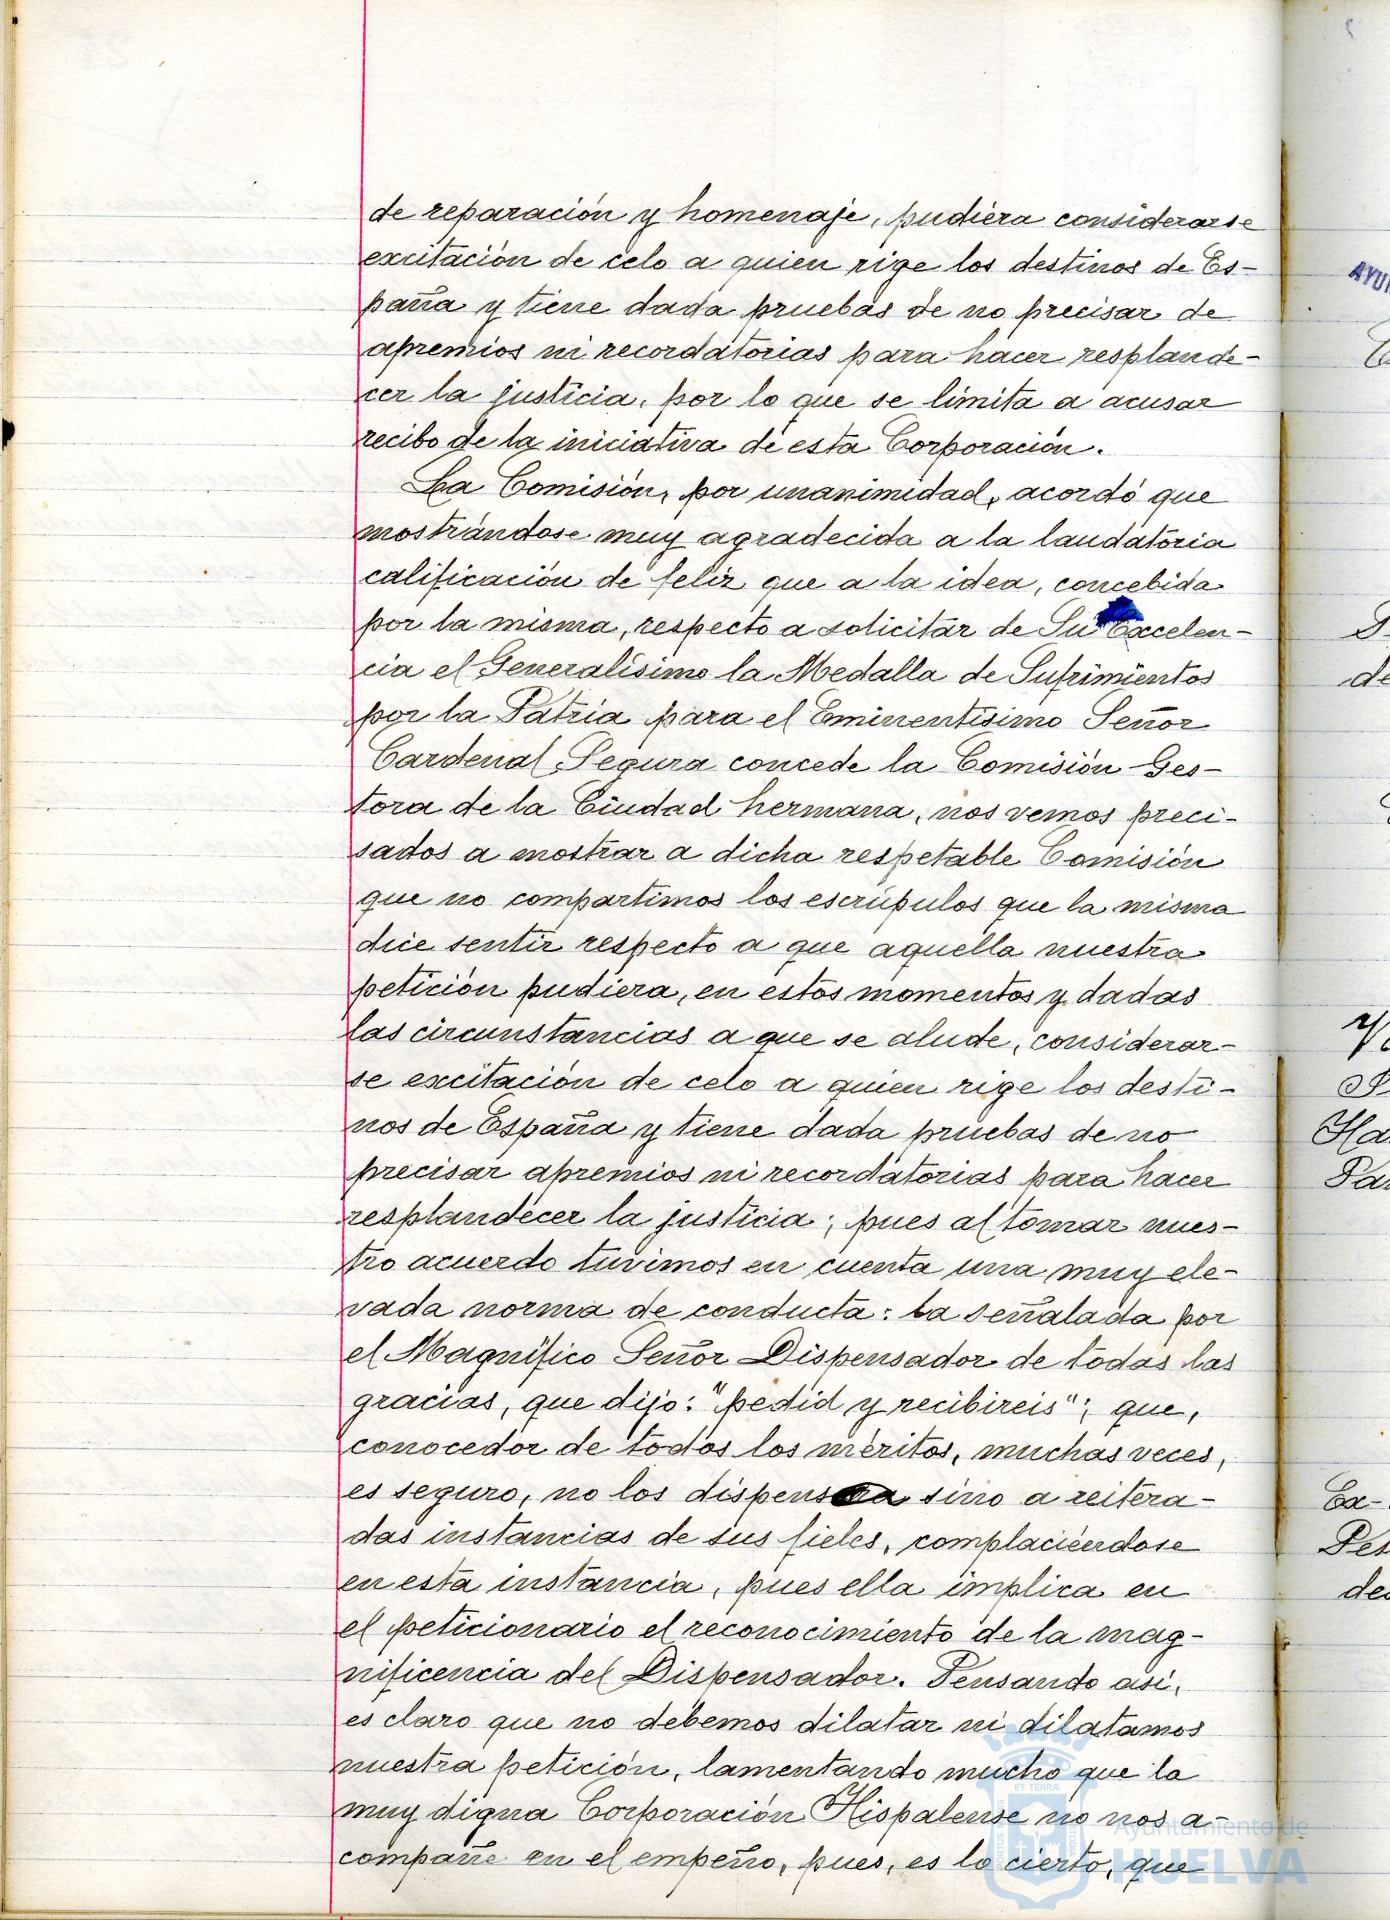 de reparación y homenaje, pudiera considerarse
excitación de celo a quien rige los destinos de Es-
paña y tiene dada pruebas de no precisar de
apremios ni recordatorias para hacer resplande-
cer la justicia, por lo que se limita a acusar
recibo de la iniciativa de esta Corporación.
La Comisión, por unanimidad, acordó que
mostrándose muy agradecida a la laudatoria
calificación de feliz que a la idea, concebida
por la misma, respecto a solicitar de Su Excelen-
cia el Generalísimo la Medalla de Sufrimientos
por la Patria para el Eminentísimo Señor
Cardenal Segura concede la Comisión Ges-
tora de la Ciudad hermana, nos vemos preci-
sados a mostrar a dicha respetable Comisión
que no compartimos los escrúpulos que la misma
dice sentir respecto a que aquella nuestra
petición pudiera, en estos momentos y dadas
las circunstancias a que se alude, considerar-
se excitación de celo a quien rige los desti-
nos de España y tiene dada pruebas de no
precisar apremios ni recordatorias para hacer
resplandecer la justicia; pues al tomar nues-
tro acuerdo tuvimos en cuenta una muy ele-
vada norma de conducta: la señalada por
el Magnífico Señor Dispensador de todas las
gracias, que dijo: "pedid y recibireis"; que,
conocedor de todos los méritos, muchas veces,
es seguro, no los dispensa sino a reitera-
das instancias de sus fieles, complaciéndose
en esta instancia, pues ella implica en
el peticionario el reconocimiento de la mag-
nificencia del Dispensador. Pensando así,
es claro que no debemos dilatar ni dilatamos
nuestra petición, lamentando mucho que la
muy digna Corporación Hispalense no nos a-
compañe en el empeño, pues, es lo cierto, que
Ayuntamiento de
HUELVA
AYU
de
Ha
Pa
Ex-
Pes
de